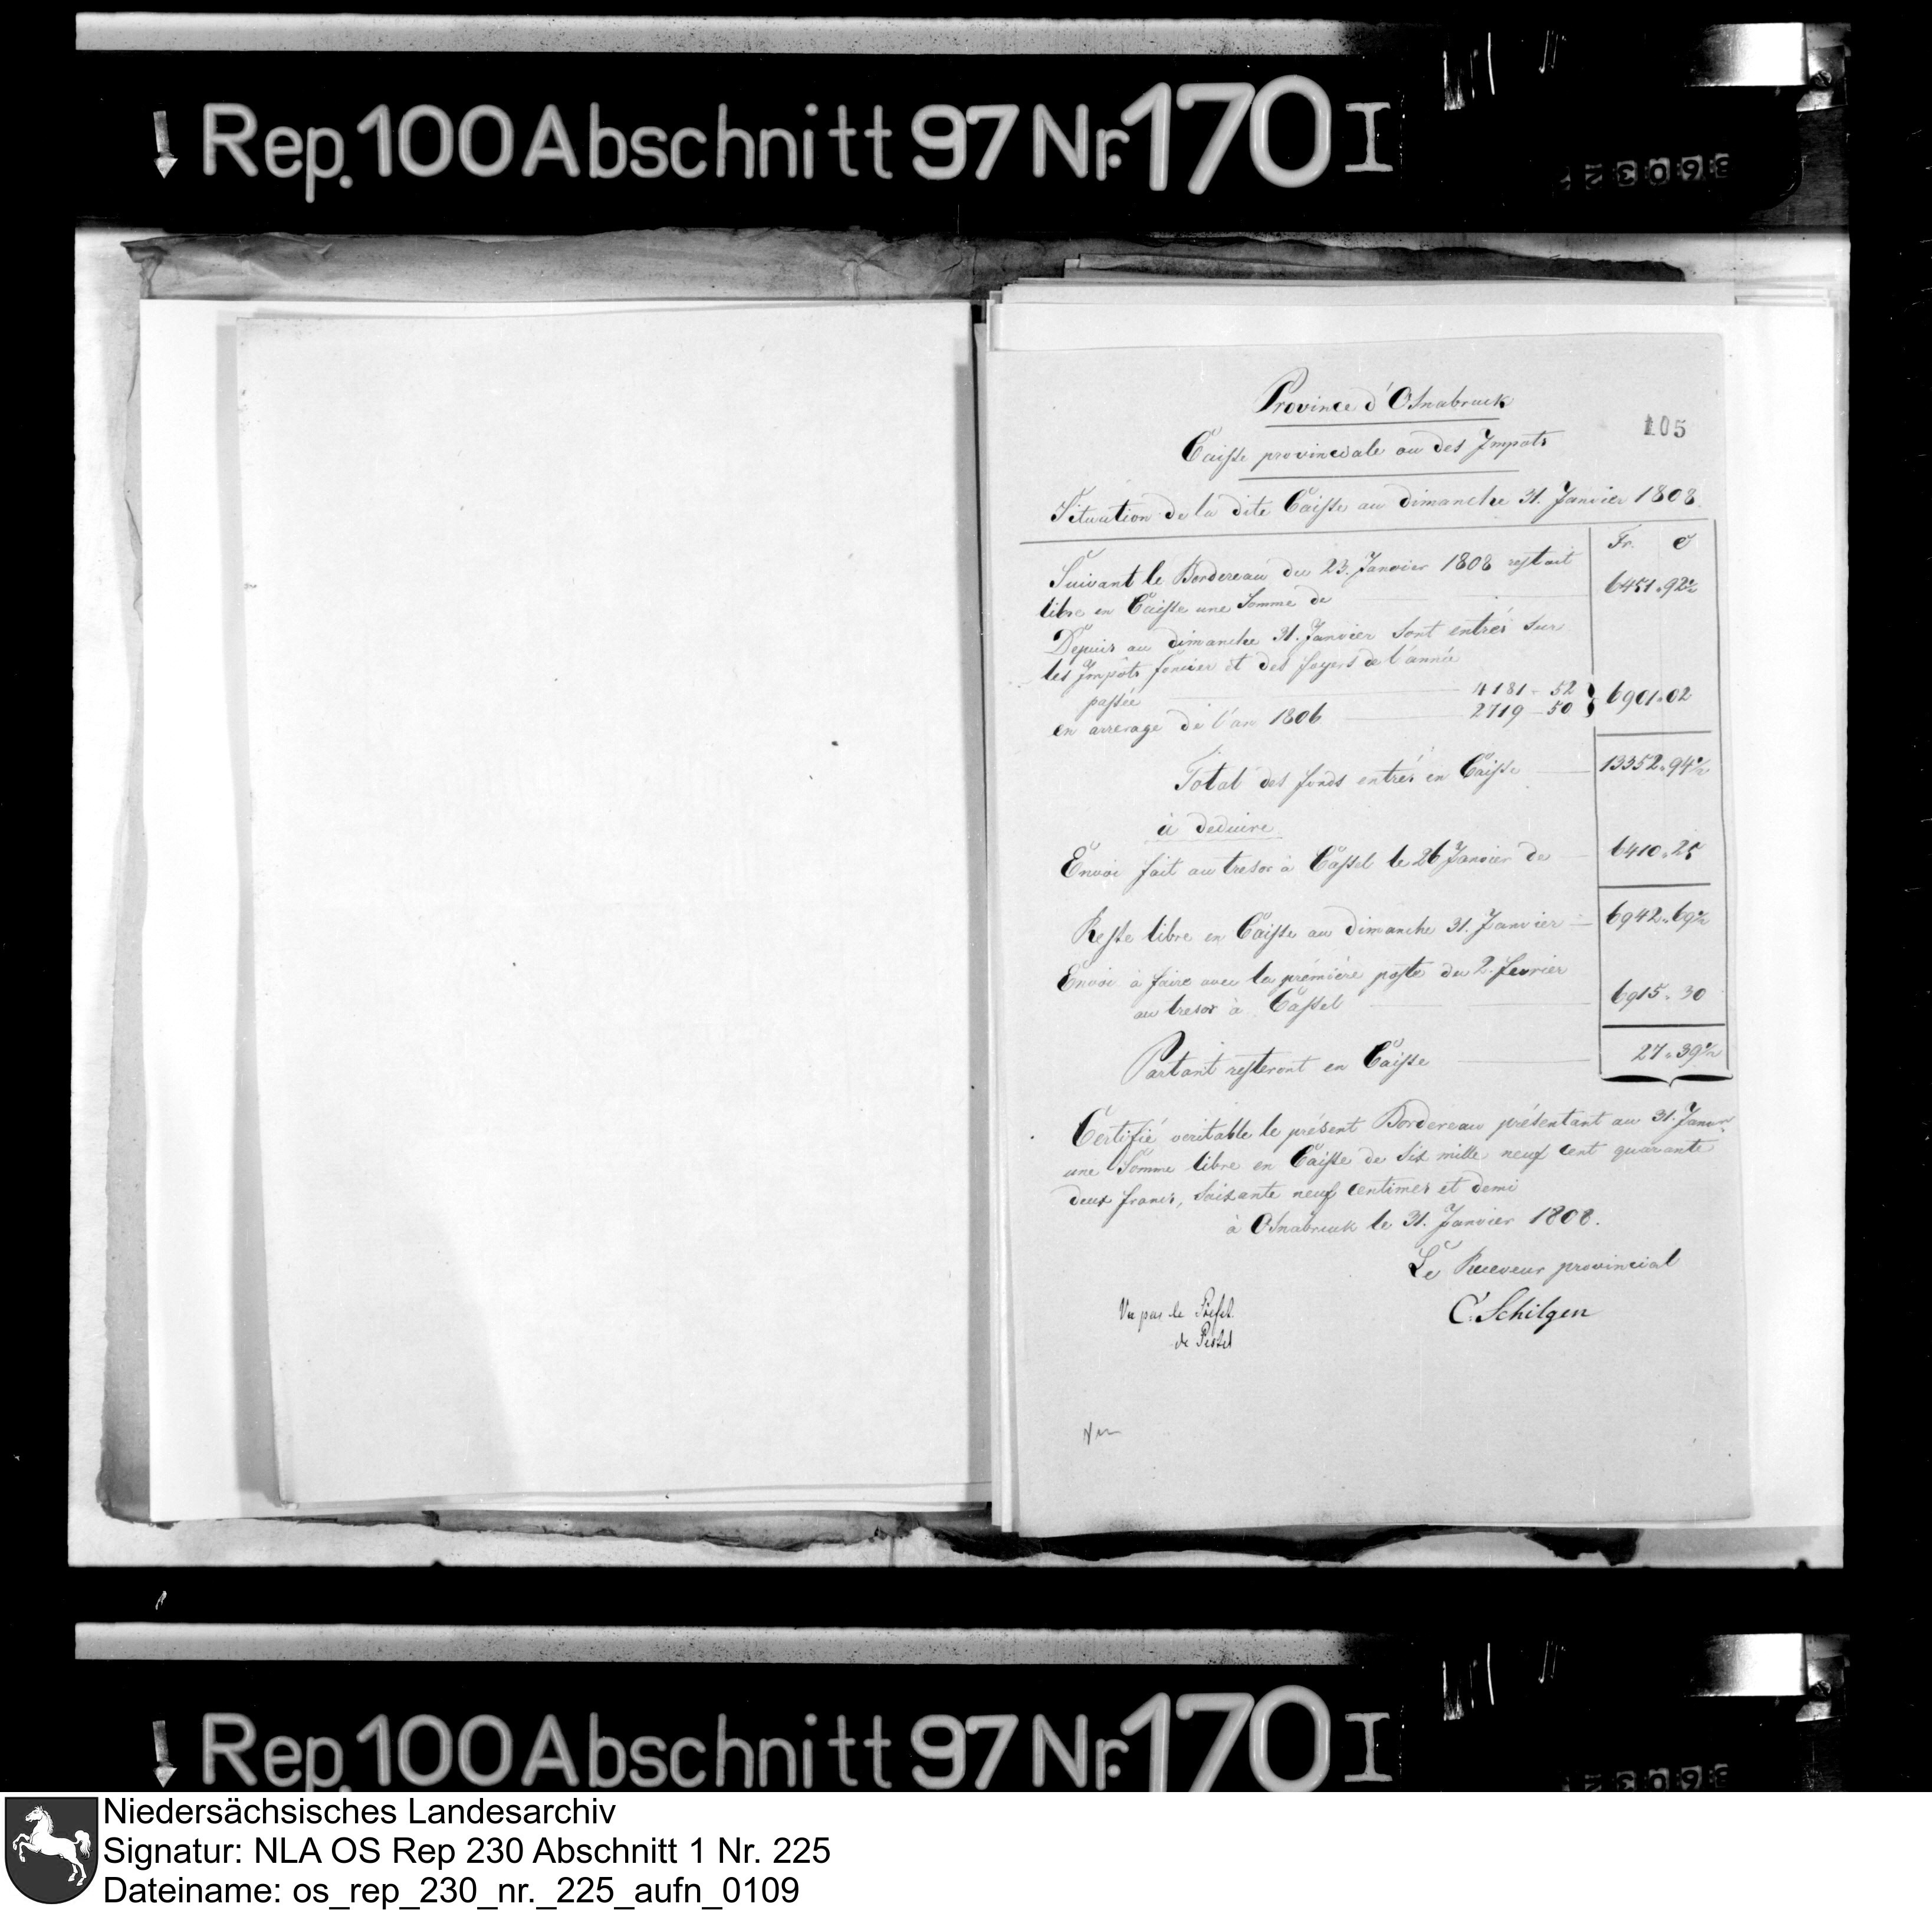 Rep. 100 Abschnitt 97 Nr. 170 I
Province d'Osnabruck
105
Caisse provinciale ou des Impots
Situation de la dite Caisse au dimanche 31. Janvier 1808.
Fr. C
Suivant le Bordereau du 23. Janvier 1808 restait
libre en Caisse une Somme de 6451 " 92½
Depuis au dimanche 31. Janvier sont entrés sur
les Impôts foncier et des foyers de l'année
passée 4181 - 52
en arrerage de l'an 1806 2719 - 50 } 6901 " 02
Total des fonds entrés en Caisse 13352 " 94½
à deduire
Envoi fait au tresor à Cassel le 26 Janvier de 6410 " 25
Reste libre en Caisse au dimanche 31. Janvier 6942 " 69½
Envoi à faire avec la première poste du 2. fevrier
au tresor à Cassel 6915 " 30
Partant resteront en Caisse 27 " 39½
Certifié veritable le présent Bordereau présentant au 31. Janvr
une Somme libre en Caisse de Six mille neuf cent quarante
deux francs, Soixante neuf centimes et demi
à Osnabruck le 31. Janvier 1808.
Le Receveur provincial
C. Schilgen
Vu par le Préfet
de Pestel
Rep. 100 Abschnitt 97 Nr. 170 I
Niedersächsisches Landesarchiv
Signatur: NLA OS Rep 230 Abschnitt 1 Nr. 225
Dateiname: os_rep_230_nr._225_aufn_0109